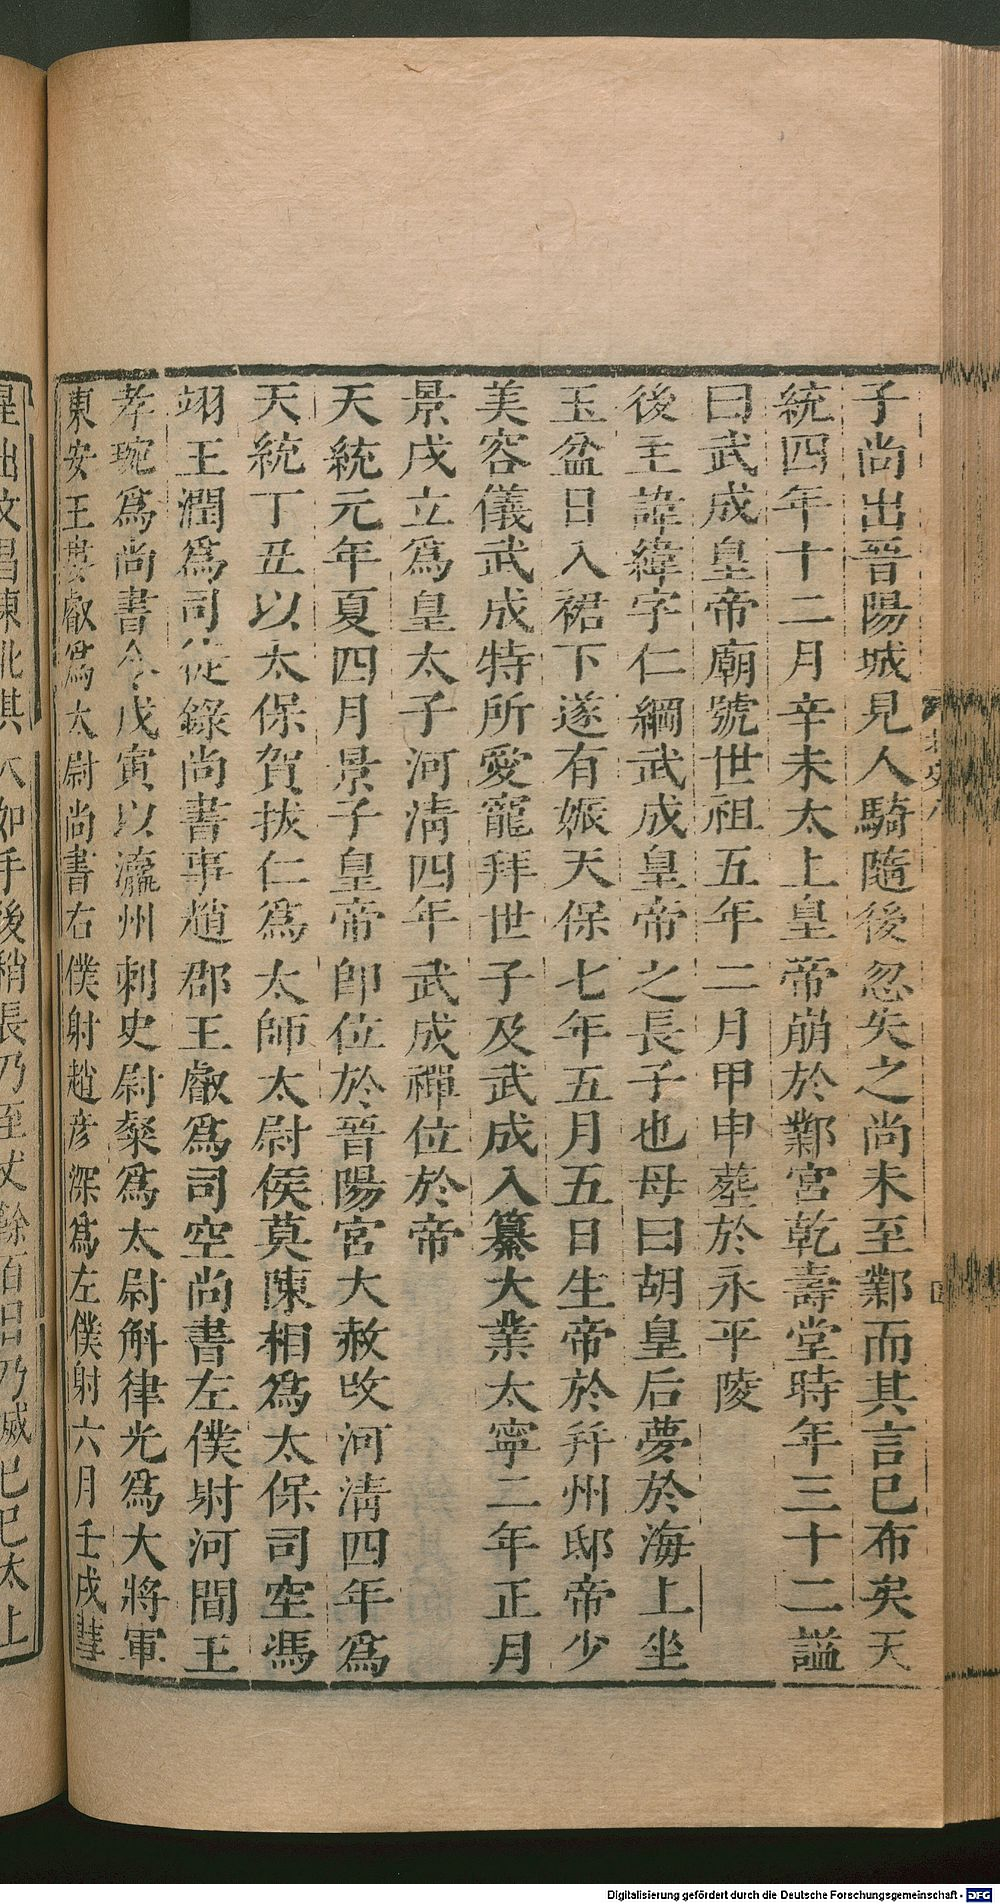 子尚出晉陽城見人騎隨後忽失之尚未至鄴而其言已布矣天
統四年十二月辛未太上皇帝崩於鄴宮乾壽堂時年三十二謚
曰武成皇帝廟號世祖五年二月甲申葬於永平陵
後主諱緯字仁綱武成皇帝之長子也母曰胡皇后夢於海上坐
玉盆日入裙下遂有娠天保七年五月五日生帝於并州邸帝少
美容儀武成特所愛寵拜世子及武成入纂大業太寧二年正月
景戌立為皇太子河清四年武成禪位於帝
天統元年夏四月景子皇帝即位於晉陽宮大赦改河清四年為
天統丁丑以太保賀拔仁為太師太尉侯莫陳相為太保司空馮
翊王潤為司徒錄尚書事趙郡王叡為司空尚書左僕射河間王
孝琬為尚書令戊寅以瀛州刺史尉粲為太尉斛律光為大將軍
東安王婁叡為太尉尚書右僕射趙彥深為左僕射六月壬戌彗
星出文昌東北其大如手後稍長乃至丈餘百日乃滅己巳太上
Digitalisierung gefördert durch die Deutsche Forschungsgemeinschaft - DFG